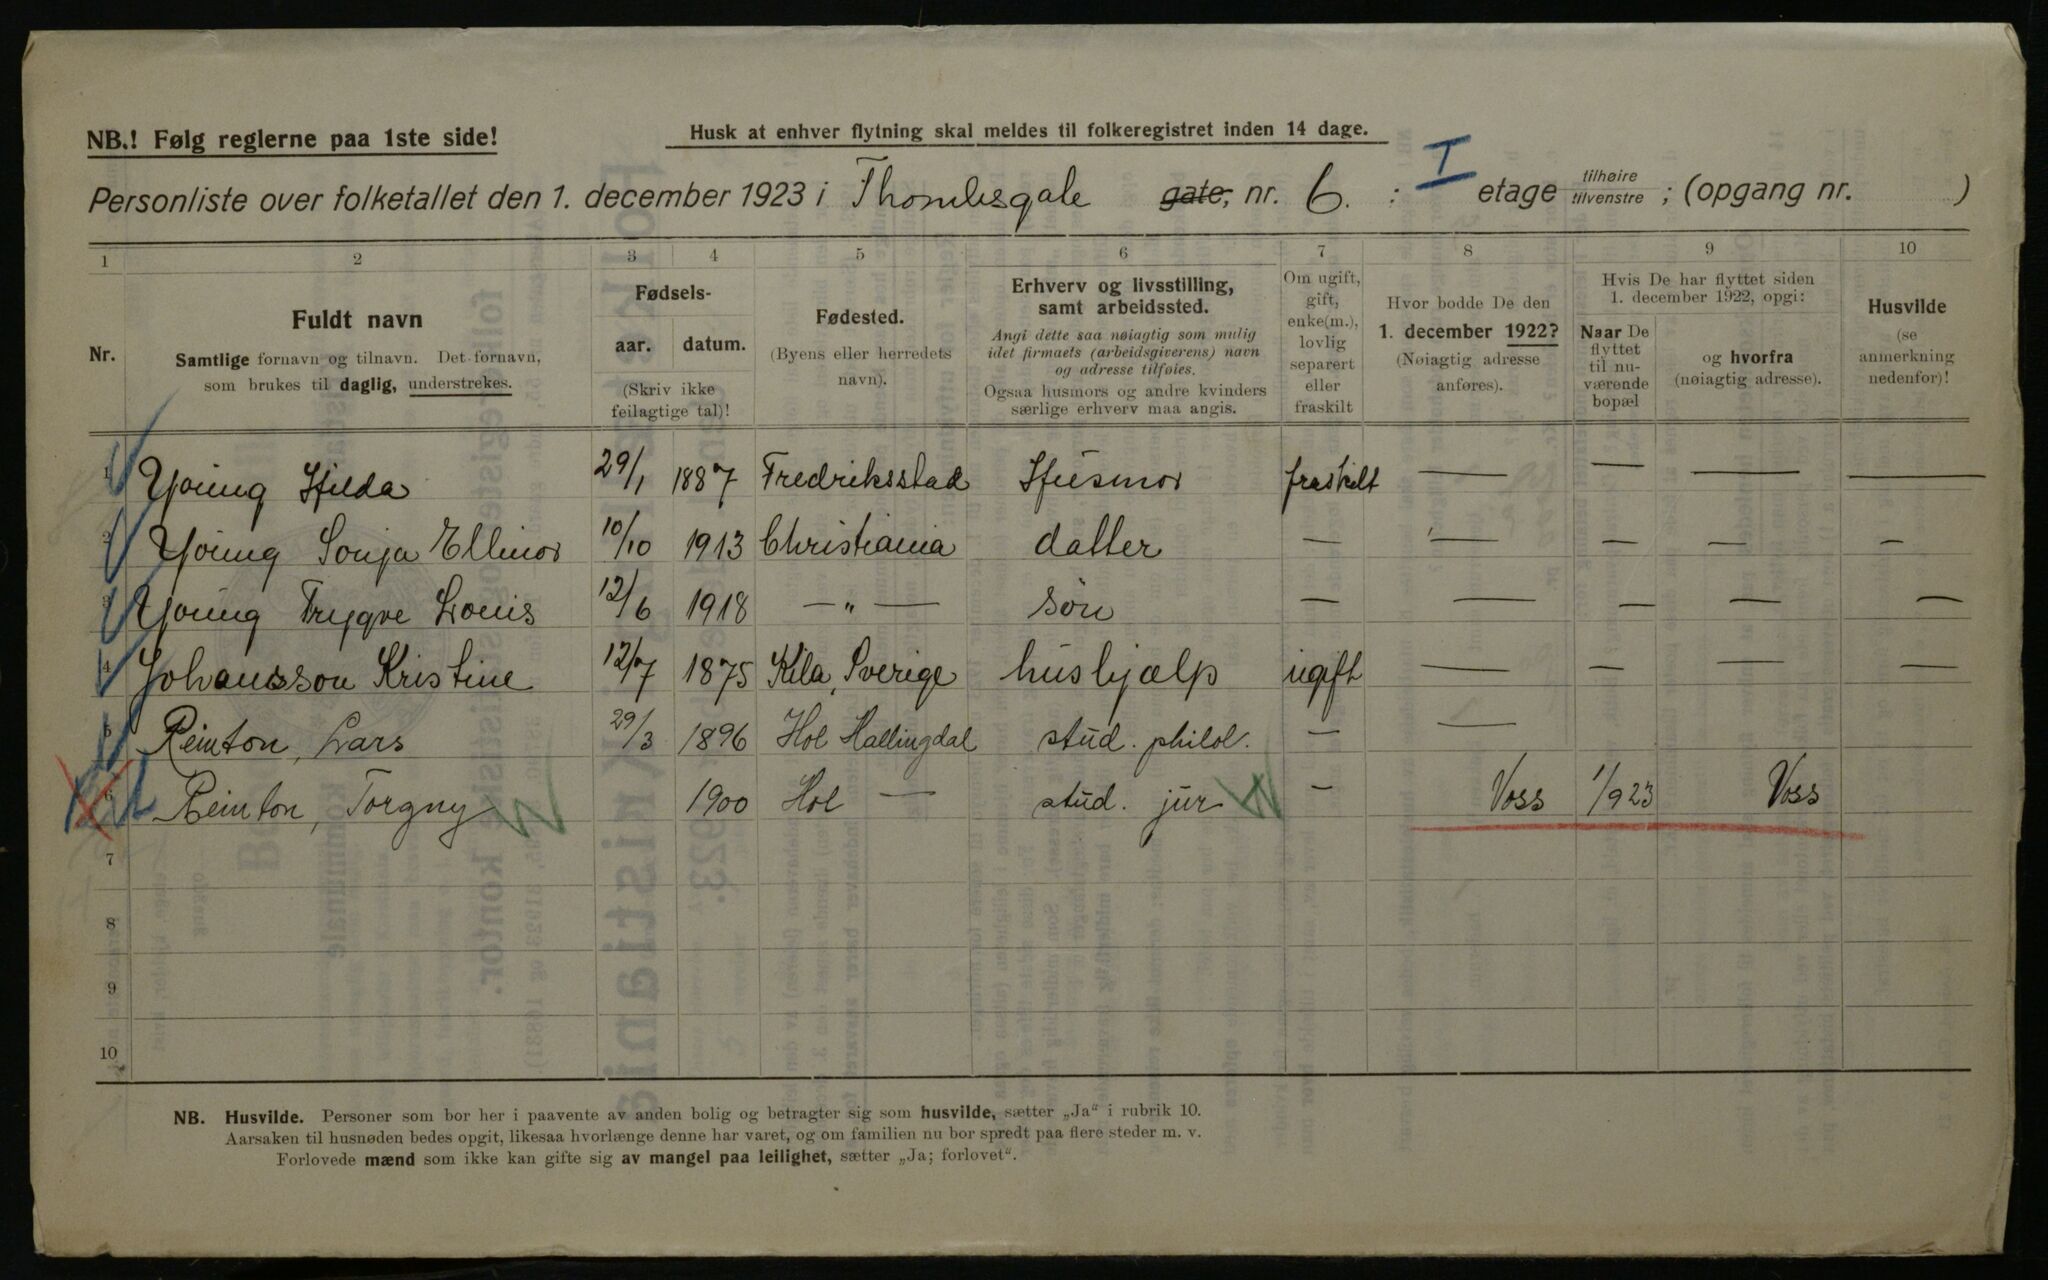 NB.! Følg reglerne paa 1ste side!
Husk at enhver flytning skal meldes til folkeregistret inden 14 dage.
Personliste over folketallet den 1. december 1923 i Thomlesgate gate, nr. 6. : I etage tilhøire tilvenstre ; (opgang nr. )
1 2 3 4 5 6 7 8 9 10
Nr.
Fuldt navn
Samtlige fornavn og tilnavn. Det fornavn,
som brukes til daglig, understrekes.
Fødsels-
aar. datum.
(Skriv ikke
feilagtige tal)!
Fødested.
(Byens eller herredets
navn).
Erhverv og livsstilling,
samt arbeidssted.
Angi dette saa nøiagtig som mulig
idet firmaets (arbeidsgiverens) navn
og adresse tilføies.
Ogsaa husmors og andre kvinders
særlige erhverv maa angis.
Om ugift,
gift,
enke(m.),
lovlig
separert
eller
fraskilt
Hvor bodde De den
1. december 1922?
(Nøiagtig adresse
anføres).
Hvis De har flyttet siden
1. december 1922, opgi:
Naar De
flyttet
til nu-
værende
bopæl
og hvorfra
(nøiagtig adresse).
Husvilde
(se
anmerkning
nedenfor)!
1 Young Hilda 29/1 1887 Fredriksstad Husmor fraskilt — — — —
2 Young Sonja Ellinor 10/10 1913 Christiania datter — — — — —
3 Young Trygve Louis 12/6 1918 — „ — søn — — — — —
4 Johansson Kristine 12/7 1875 Kila, Sverige hushjælp ugift — — — —
5 Reinton, Lars 29/3 1896 Hol Hallingdal stud. philol. — —
6 Reinton, Torgny 1900 Hol — stud. jur — Voss 1/923 Voss
7
8
9
10
NB. Husvilde. Personer som bor her i paavente av anden bolig og betragter sig som husvilde, sætter „Ja“ i rubrik 10.
Aarsaken til husnøden bedes opgit, likesaa hvorlænge denne har varet, og om familien nu bor spredt paa flere steder m. v.
Forlovede mænd som ikke kan gifte sig av mangel paa leilighet, sætter „Ja; forlovet“.